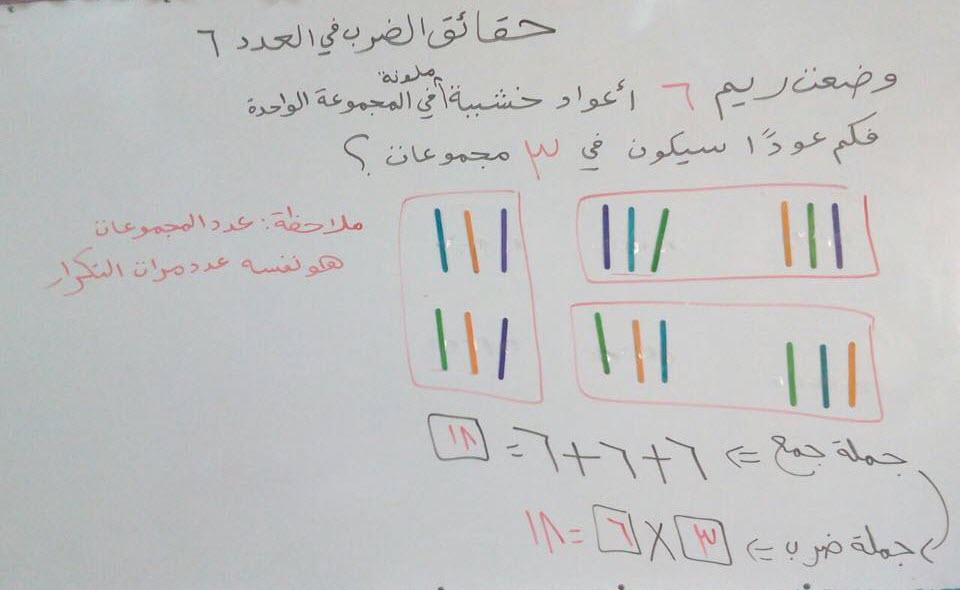 حقائق الضرب في العدد ٦
وضعت ريم ٦ أعواد خشبية ملونة في المجموعة الواحدة
فكم عودًا سيكون في ٣ مجموعات ؟
ملاحظة: عدد المجموعات
هو نفسه عدد مرات التكرار
جملة جمع <= ٦+٦+٦ = ١٨
جملة ضرب <= ٣ × ٦ = ١٨